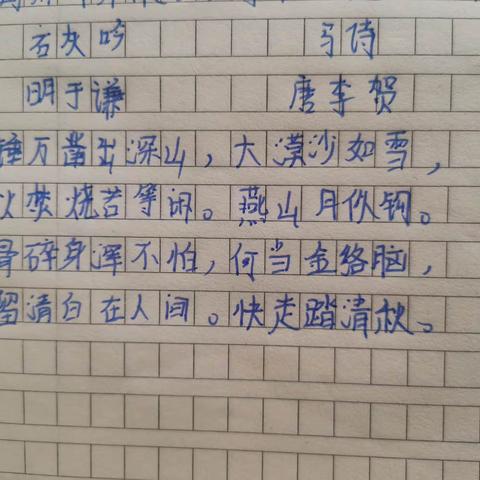 石灰吟 马诗
明于谦 唐李贺
锤万凿出深山，大漠沙如雪，
火焚烧若等闲。燕山月似钩。
骨碎身浑不怕，何当金络脑，
留清白在人间。快走踏清秋。